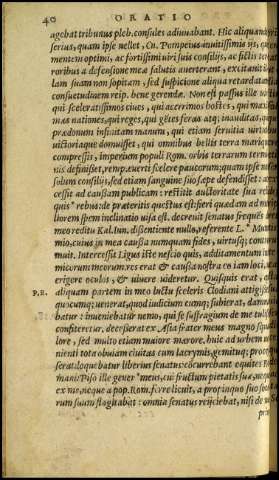 40 ORATIO
agebat tribunus pleb. consules adiuuabant. Hic aliquando
serius, quàm ipse uellet, Cn. Pompeius inuitissimis ijs, qui
mentem optimi, ac fortissimi uiri suis consilijs, ac fictis ter-
roribus a defensione meæ salutis auerterant, excitauit illam
suam non sopitam, sed suspicione aliqua retardatam
consuetudinem reip. bene gerendæ. Non est passus ille uir
qui sceleratissimos ciues, qui acerrimos hostes, qui maxi-
mas nationes, qui reges, qui gētes feras atq; inauditas, qui
prædonum infinitam manum, qui etiam seruitia uirtute
uictoriaque domuisset, qui omnibus bellis terra mariq;
compressis, imperium populi Rom. orbis terrarum termi-
nis definisset, remp. euerti scelere paucorum, quam ipse non
solum consilijs, sed etiam sanguine suo sæpe defendisset: ac-
cessit ad causam publicam: restitit auctoritate sua reli-
quis rebus: de præteritis questus est: fieri quædam ad me-
liorem spem inclinatio uisa est. decreuit senatus frequens
meo reditu Kal. Iun. dissentiente nullo, referente L.
mio, cuius in mea causa numquam fides, uirtusq;
muit. Intercessit Ligus iste nescio quis, additamentum
micorum meorum. res erat & causa nostra eo iam loci,
erigere oculos, & uiuere uideretur. Quisquis erat,
P. R. aliquam partem in meo luctu sceleris Clodiani attigisset
quocumq; uenerat, quod iudicium cumq; subierat, damna-
batur: inueniebatur nemo, qui se suffragium de me tulisse
confiteretur. decesserat ex Asia frater meus magno squa-
lore, sed multo etiam maiore mærore. huic ad urbem ue-
nienti tota obuiam ciuitas cum lacrymis, gemituq; pro-
serat. loquebatur liberius senatus: cōcurrebant equites Ro-
mani: Piso ille gener meus, cui fructum pietatis suæ, neq;
ex me, neque a pop. Rom. ferre licuit, a propinquo suo soce-
rum suum flagitabat: omnia senatus reijciebat, nisi de